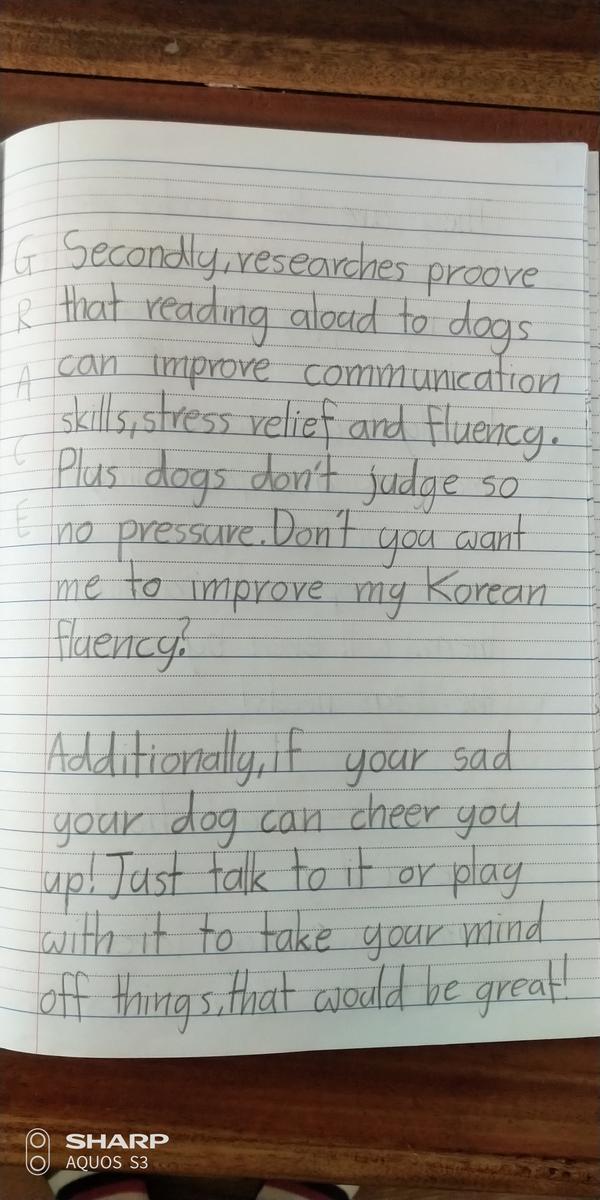 G Secondly, researches proove
R that reading aloud to dogs
A can improve communication
skills, stress relief and fluency.
C Plus dogs don't judge so
E no pressure. Don't you want
me to improve my Korean
fluency?
Additionally, if your sad
your dog can cheer you
up! Just talk to it or play
with it to take your mind
off things, that would be great!
SHARP
AQUOS S3